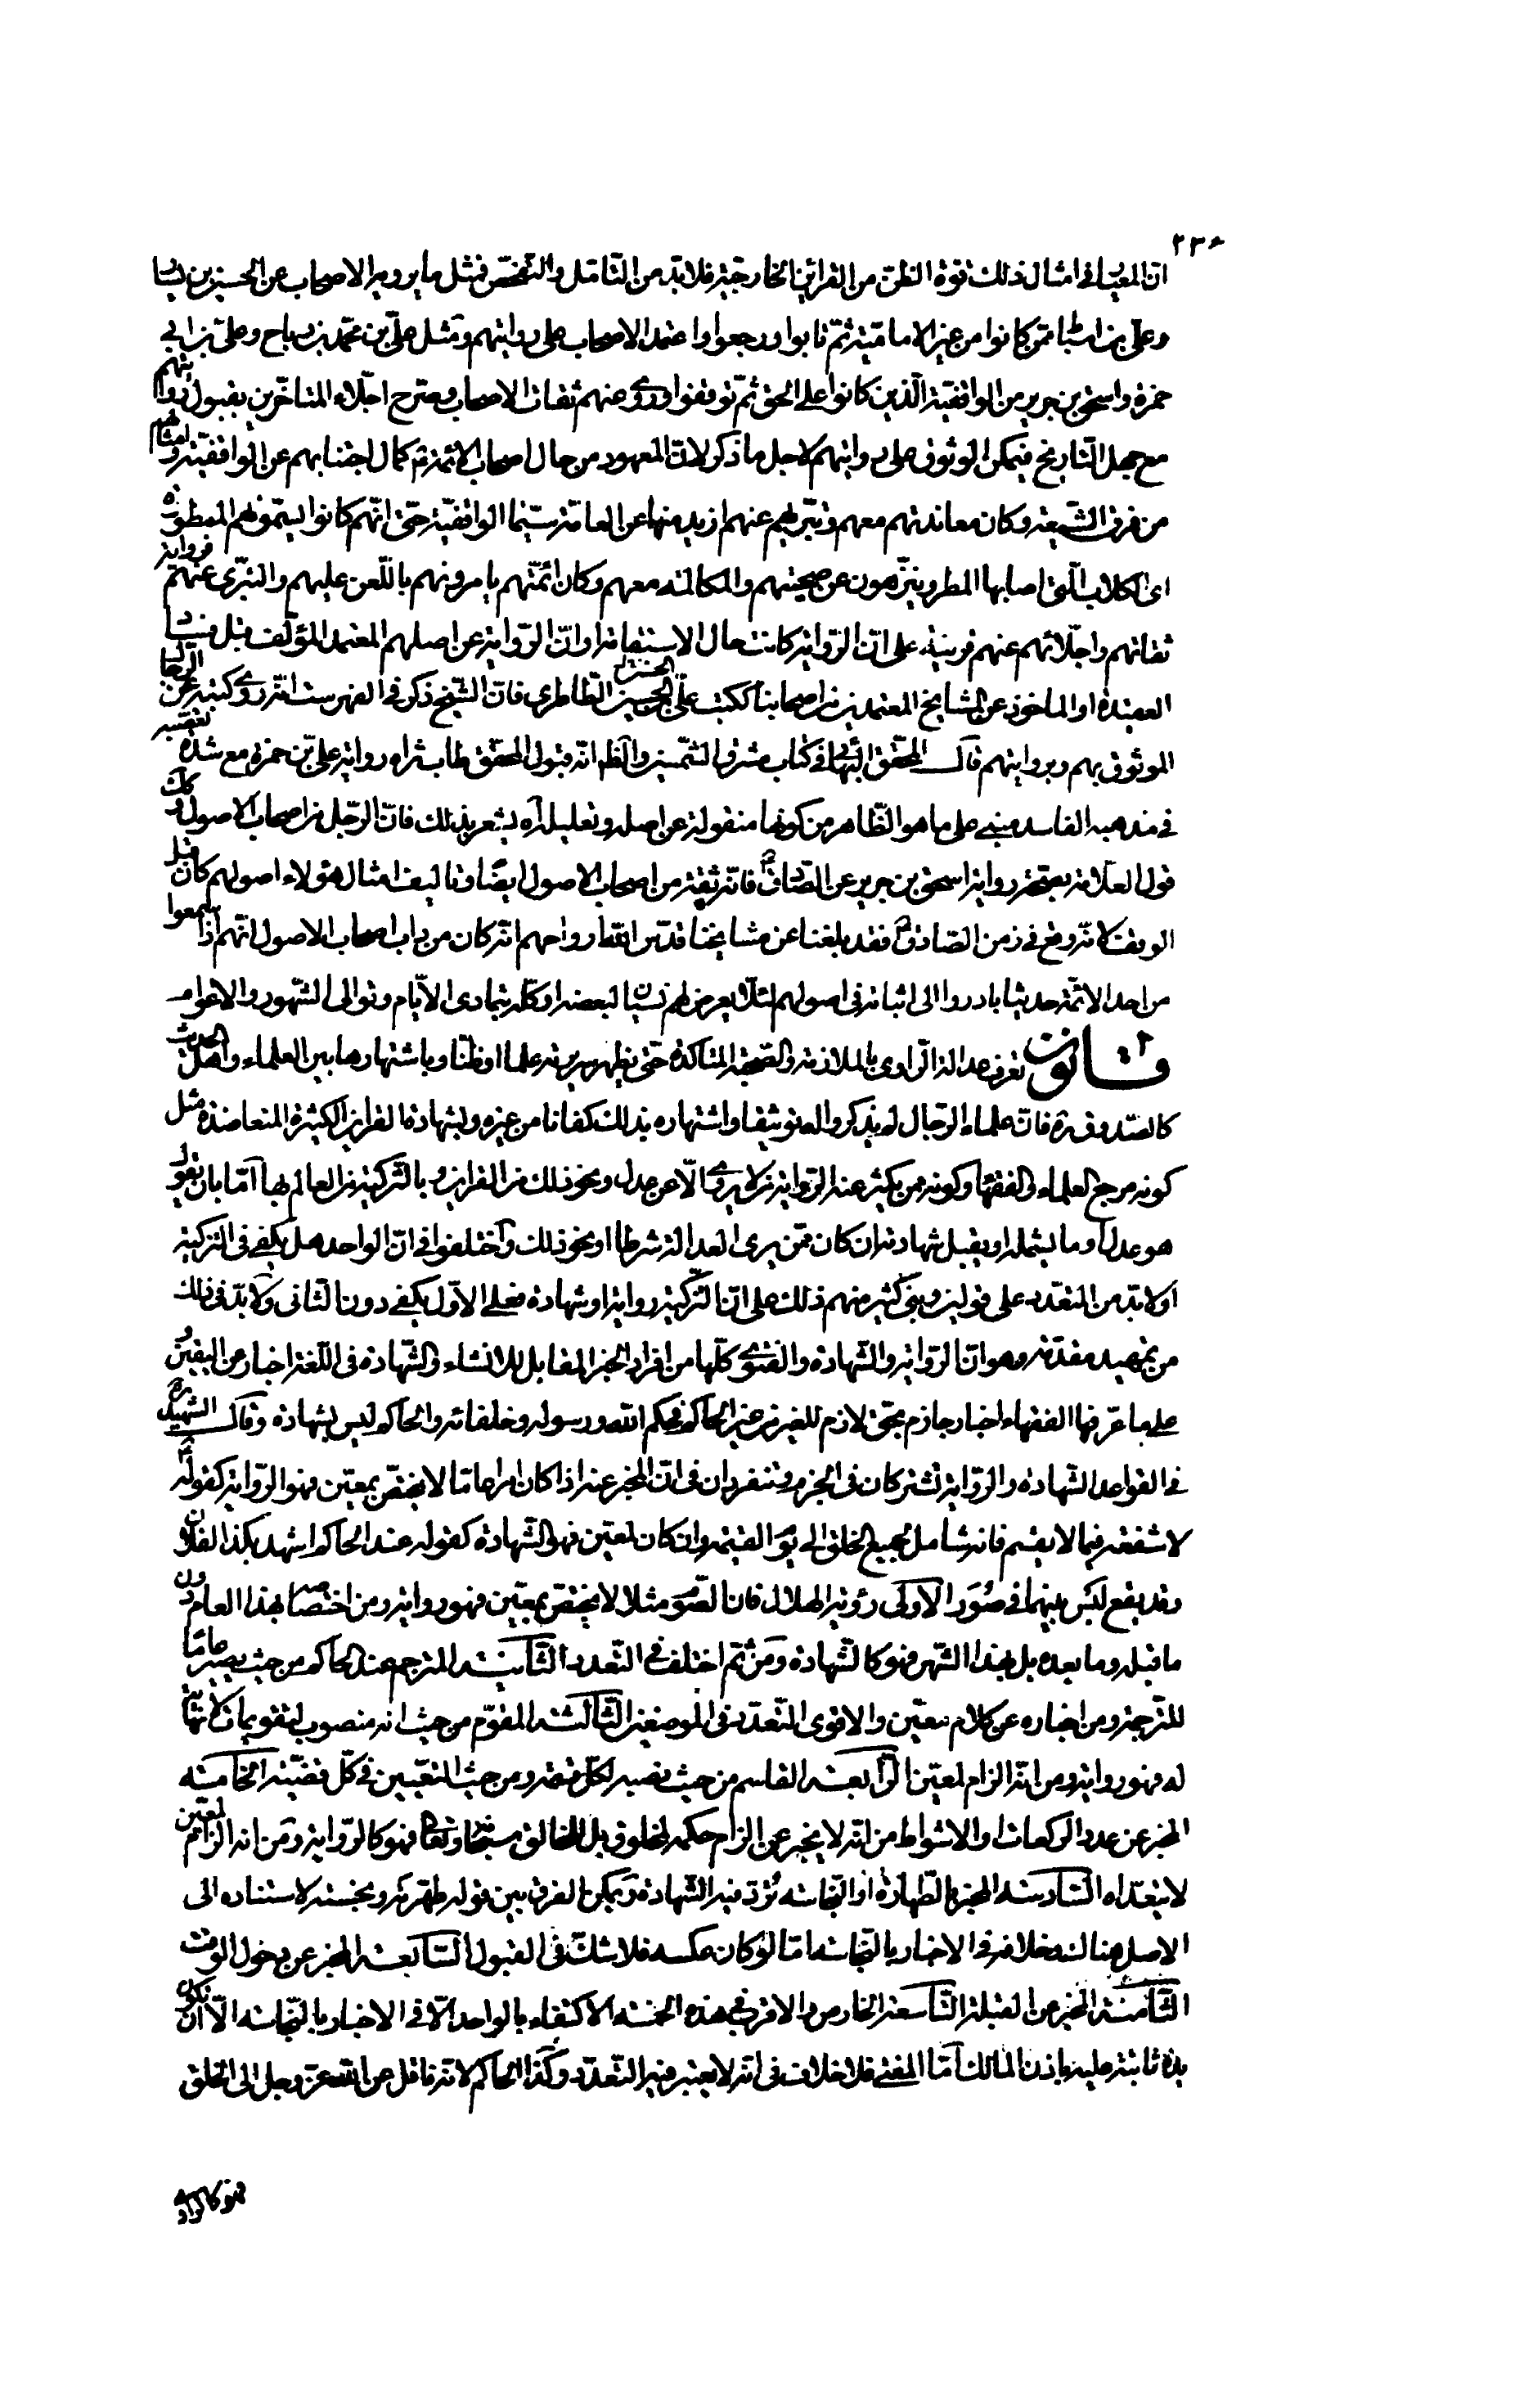 ٢٣۶
ان المعيار فى امثال ذلك قوة الظن من القرائن الخارجية فلا بد من التامل والتفحص فمثل ما يرويه الاصحاب عن الحسين بن بشار
وعلى بن اسباط ممن كانوا من غير الامامية ثم تابوا ورجعوا واعتمد الاصحاب على روايتهم ومثل على بن محمد بن رباح وعلى بن ابى
حمزة واسحق بن جرير من الواقفية الذين كانوا على الحق ثم توقفوا وروى عنهم ثقات الاصحاب وصرح اجلاء المتاخرين بقبول روايتهم
مع جهل التاريخ فيمكن الوثوق على روايتهم لاجل ما ذكر لان المعهود من حال اصحاب الائمة ع كمال اجتنابهم عن الواقفية وامثالهم
من فرق الشيعة وكان معاندتهم معهم وتبريهم عنهم ازيد منها عن العامة سيما الواقفية حتى انهم كانوا يسمونهم الممطورة
اى الكلاب التى اصابها المطر ويتنزهون عن صحبتهم والمكالمة معهم وكان ائمتهم يامرونهم باللعن عليهم والتبرى عنهم فرواية
ثقاتهم واجلائهم عنهم قرينة على ان الرواية كانت حال الاستقامة او ان الرواية عن اصلهم المعتمد المؤلف قبل فساد
العقيدة او الماخوذ عن المشايخ المعتمدين من اصحابنا ككتب على بن الحسن الطاطرى فان الشيخ ذكر فى الفهرست انه روى كتبه عن الرجال
الموثوق بهم وبروايتهم قال المحقق البهائى فى كتاب مشرق الشمسين والظ ان قبول المحقق طاب ثراه رواية على بن حمزة مع شدة تعصبه
فى مذهبه الفاسد مبنى على ما هو الظاهر من كونها منقولة عن اصله وتعليله ره يشعر بذلك فان الرجل من اصحاب الاصول وكك
قول العلامة بصحة رواية اسحق بن جرير عن الصادق ع فانه ثقة من اصحاب الاصول ايضا وتاليف امثال هؤلاء اصولهم كان قبل
الوقف لانه وقع فى زمن الصادق ع فقد بلغنا عن مشايخنا قدس الله ارواحهم انه كان من داب اصحاب الاصول انهم اذا سمعوا
من احد الائمة حديثا بادروا الى اثباته فى اصولهم لئلا يعرض لهم نسيان لبعضه او كله بتمادى الايام وتوالى الشهور والاعوام
قانون تعرف عدالة الراوى بالملازمة والصحبة المتاكدة حتى يظهر سريرته علما او ظنا وباشتهارها بين العلماء واهل الحديث
كالصدوق ره فان علماء الرجال لم يذكروا له توثيقا واشتهاره بذلك كفانا من غيره وبشهادة القرائن الكثيرة المتعاضدة مثل
كونه مرجع العلماء والفقهاء وكونه ممن يكثر عنه الرواية من لا يروى الا عن عدل ونحو ذلك من القرائن وبالتزكية من العالم بها اما بان يقول
هو عدل او ما يشمله او يقبل شهادته ان كان ممن يرى العدالة شرطا او نحو ذلك واختلفوا فى ان الواحد هل يكفى فى التزكية
او لا بد من التعدد على قولين وبنى كثير منهم ذلك على ان التزكية رواية او شهادة فعلى الاول يكفى دون الثانى ولا بد فى ذلك
من تمهيد مقدمة وهو ان الرواية والشهادة والفتوى كلها من افراد الخبر المقابل للانشاء والشهادة فى اللغة اخبار عن اليقين و
على ما عرفها الفقهاء اخبار جازم بحق لازم للغير من غير الحاكم فحكم الله ورسوله وخلفائه والحاكم ليس بشهادة وقال الشهيد ره
فى القواعد الشهادة والرواية تشتركان فى الجزم وتنفردان فى ان المخبر عنه اذا كان امرا عاما لا يختص بمعين فهو الرواية كقوله ع
لا شفعة فيما لا يقسم فانه شامل لجميع الخلق الى يوم القيمة وان كان لمعين فهو الشهادة كقوله عند الحاكم اشهد بكذا لفلان
وقد يقع لبس بينهما فى صور الاولى رؤية الهلال فان الصوم مثلا لا يختص بمعين فهو رواية ومن اختصاصه بهذا العام دون
ما قبله وما بعده بل بهذا الشهر فهو كالشهادة ومن ثم اختلف فى التعدد الثانية المترجم عند الحاكم من حيث يصير عاما
للترجمة ومن اخباره عن كلام معين والاقوى التعدد فى الموضعين الثالثة المقوم من حيث انه منصوب لتقويمات لا نهاية
له فهو رواية ومن انه الزام لمعين الرابعة القاسم من حيث نصبه لكل قسمة ومن حيث التعيين فى كل قضية الخامسة
المخبر عن عدد الركعات والاشواط من انه لا يخبر عن الزام حكم لمخلوق بل للخالق سبحانه وتعالى فهو كالرواية ومن انه الزام لمعين
لا يتعداه السادسة المخبر بالطهارة او النجاسة ترد فيه الشهادة ويمكن الفرق بين قوله طهرته ونجسته لاستناده الى
الاصل هنا لك وخلافه فى الاخبار بالنجاسة اما لو كان عكسه فلا شك فى القبول السابعة المخبر عن دخول الوقت
الثامنة المخبر عن القبلة التاسعة الخارص والاقرب فى هذه الخمسة الاكتفاء بالواحد الا فى الاخبار بالنجاسة الا ان تكون
يده ثابتة عليه باذن المالك اما المفتى فلا خلاف فى انه لا يعتبر فيه التعدد وكذا الحاكم لانه ناقل عن الله عز وجل الى الخلق
فهو كالراوى